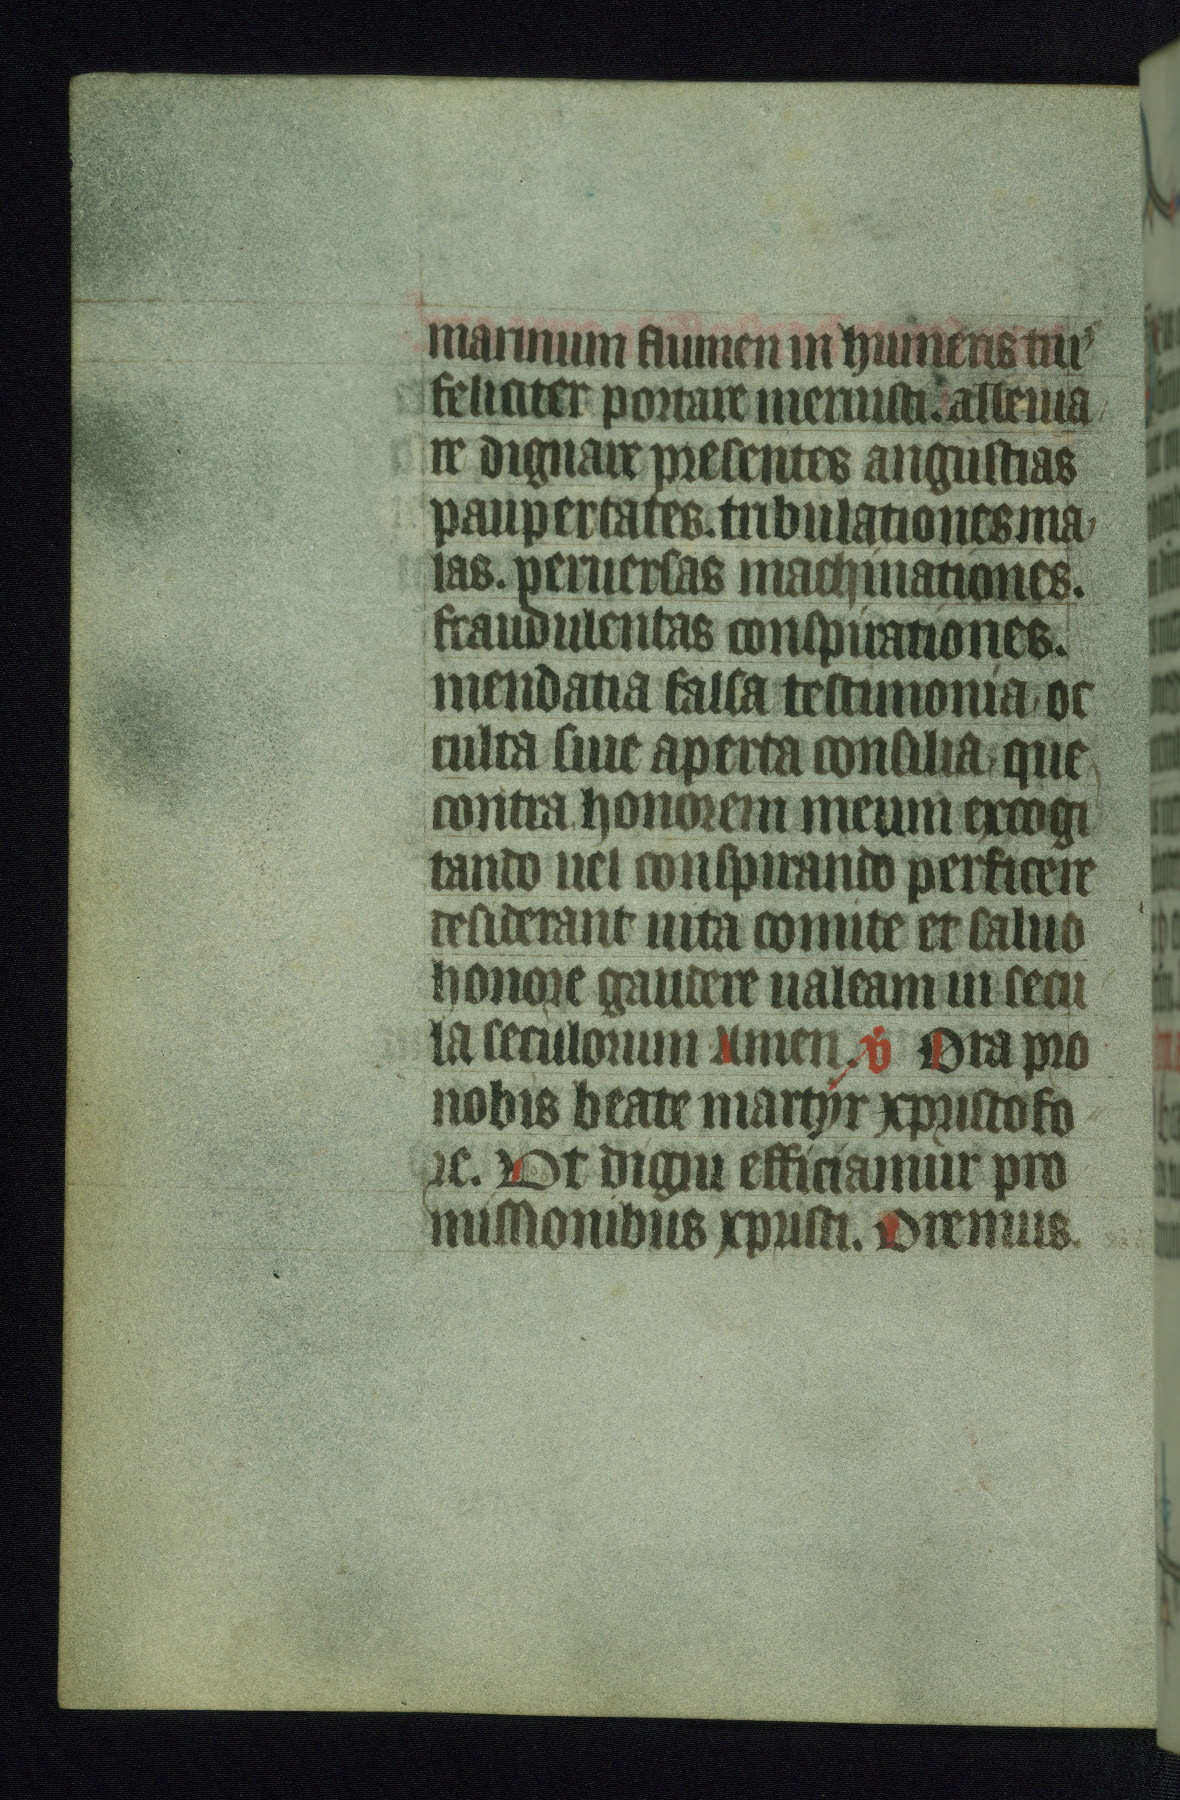 marinum flumen in humeris tuis
feliciter portare meruisti. allenia
re dignare presentes angustias
paupertates. tribulationes ma
las. peruersas machinationes.
fraudulentas conspirationes.
mendatia falsa testimonia, oc
culta siue aperta consilia, que
contra honorem meum excogi
tando uel conspirando perficere
desiderant uita comite et saluo
honore gaudere ualeam in secu
la seculorum Amen. v̇ Ora pro
nobis beate martyr xpristofo
re. Ut digni efficiamur pro
missionibus xpristi. Oremus.